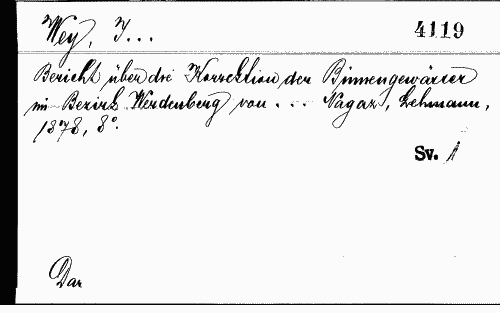 Wey, J...
4119
Bericht über die Korrektion der Binnengewässer
im Bezirk Werdenberg von ... Ragaz, Lehmann,
1878, 8°.
Sv. A
Dar